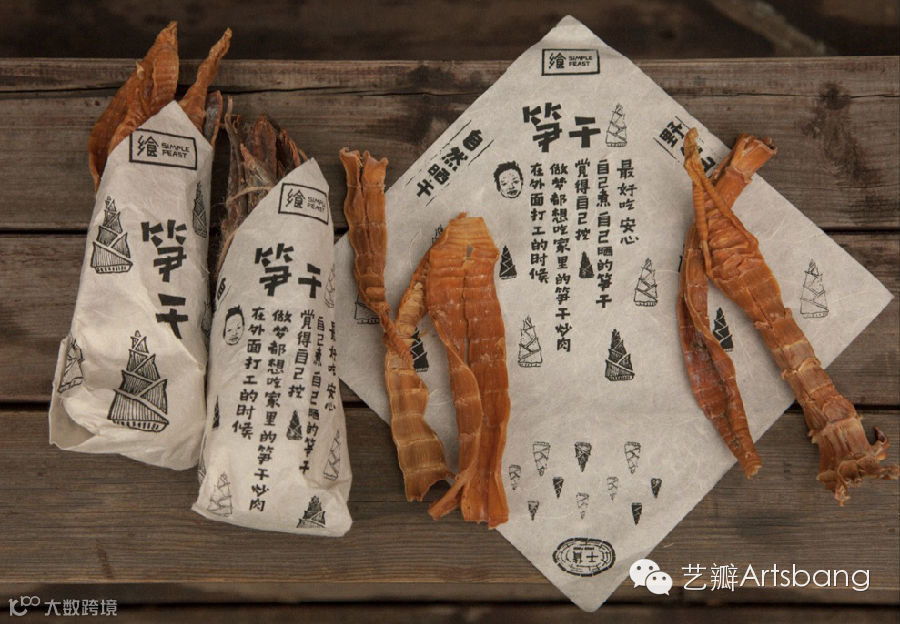 飨 SIMPLE FEAST
笋干
飨 SIMPLE FEAST
笋干
在外面打工的时候
做梦都想吃家里的笋干炒肉
觉得自己挖
自己煮 自己晒的笋干
最好吃 安心
飨 SIMPLE FEAST
笋干
自然晒干
野
在外面打工的时候
做梦都想吃家里的笋干炒肉
觉得自己挖
自己煮 自己晒的笋干
最好吃 安心
艺瓣Artsbang
大数跨境